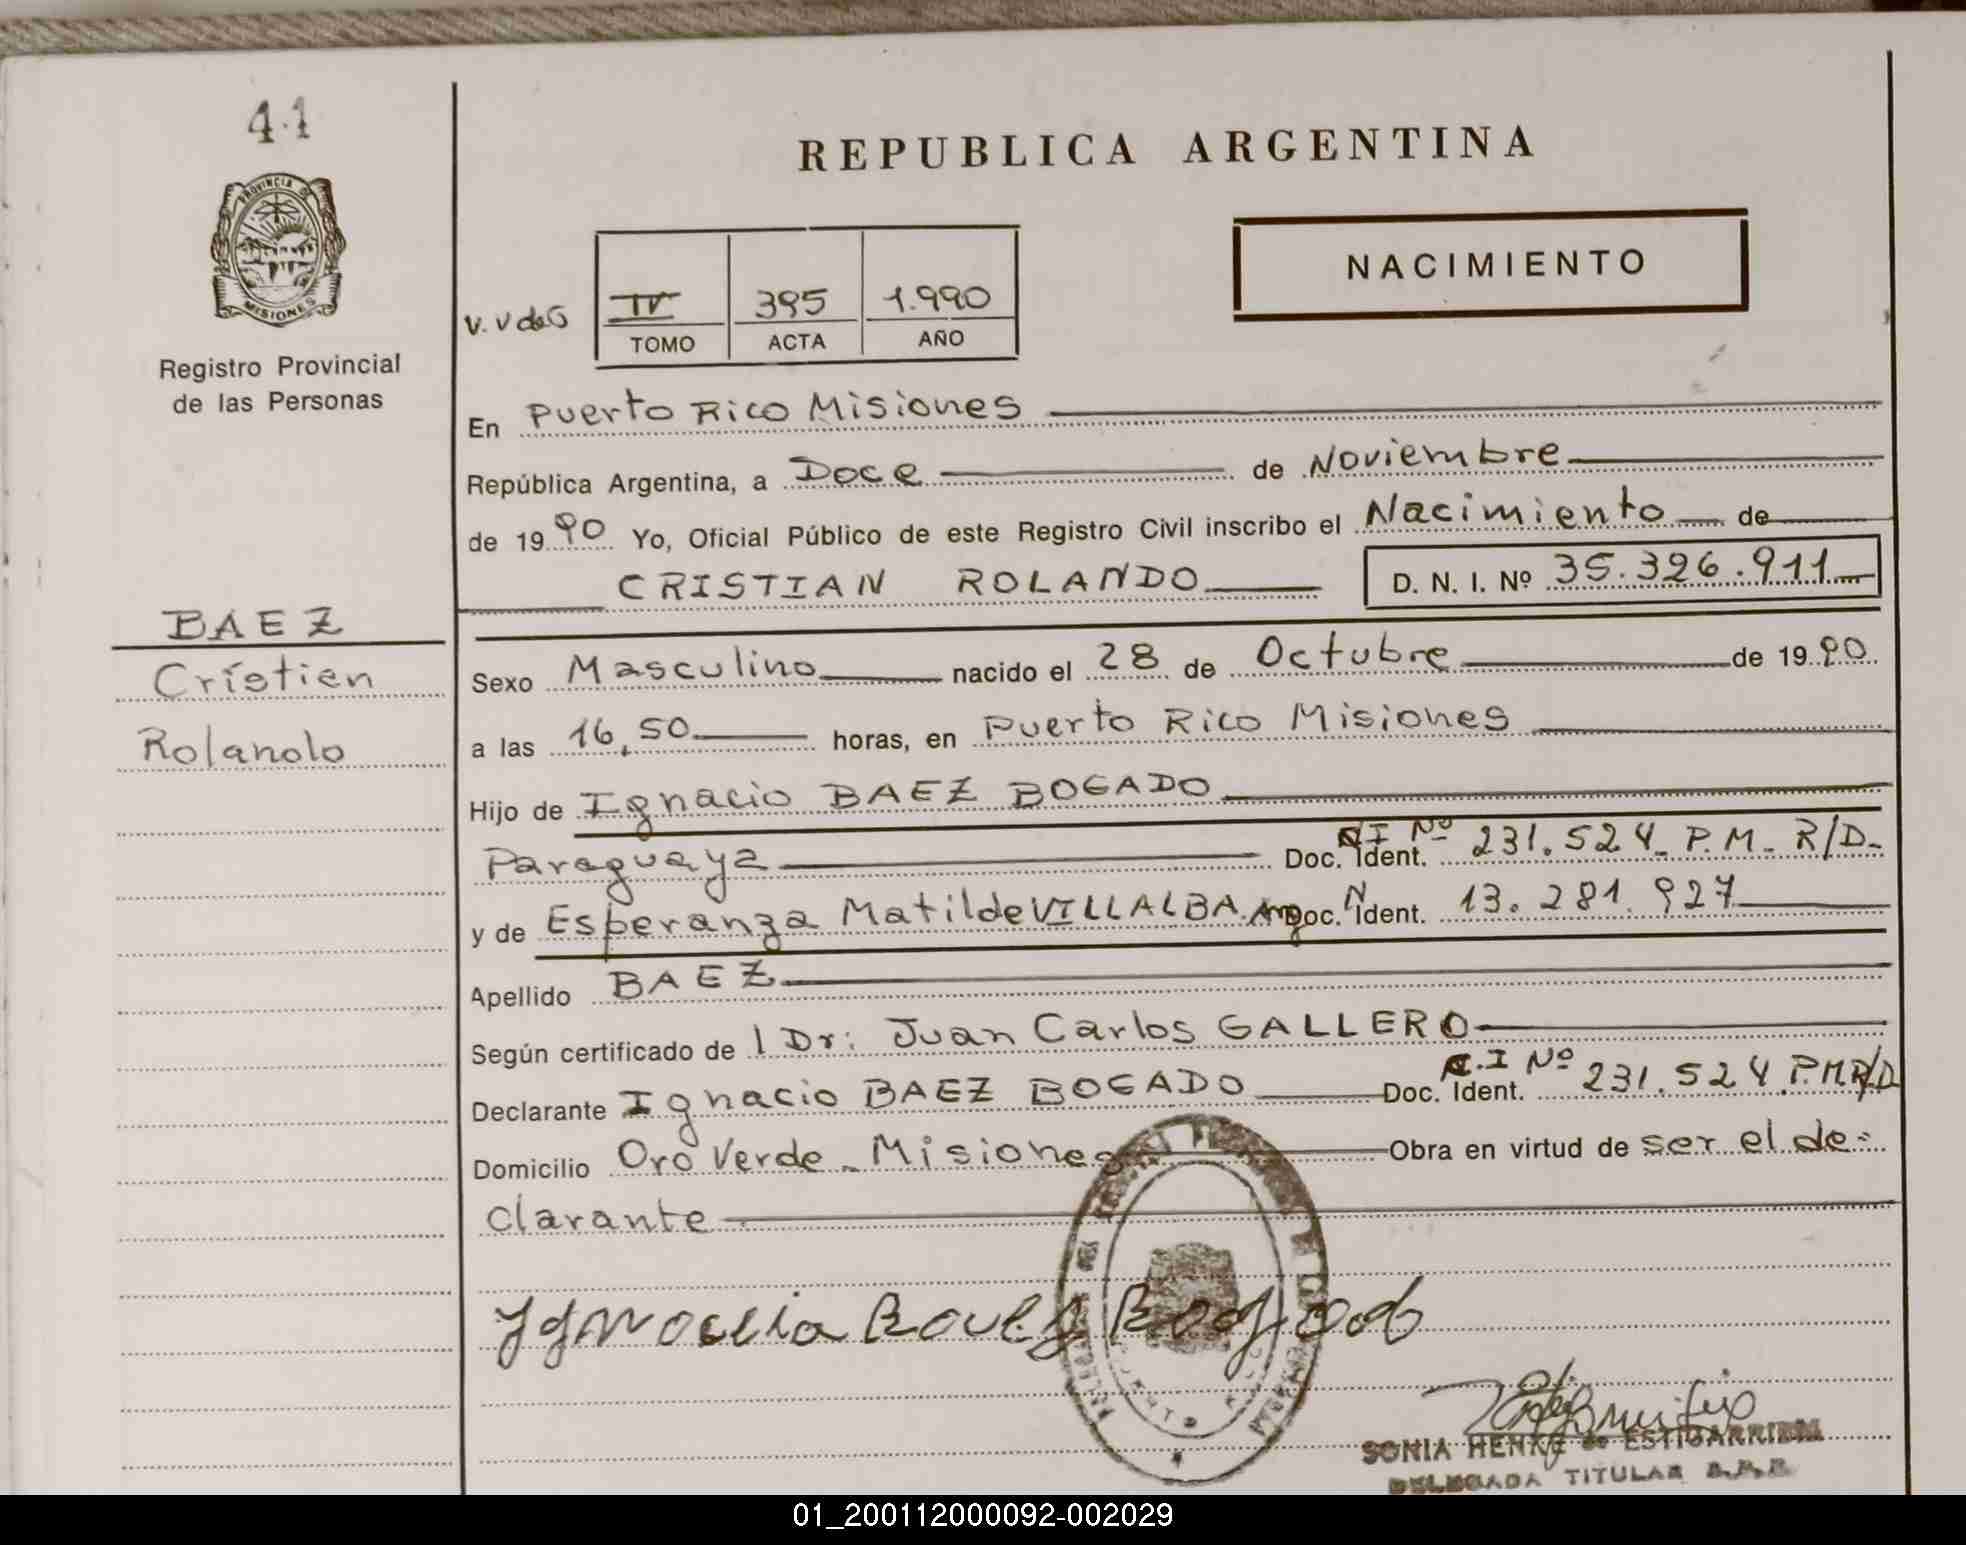 41
PROVINCIA DE
MISIONES
Registro Provincial
de las Personas
BAEZ
Cristian
Rolando
REPUBLICA ARGENTINA
NACIMIENTO
V. V de G
IV 395 1.990
TOMO ACTA AÑO
En Puerto Rico Misiones
República Argentina, a Doce de Noviembre
de 1990 Yo, Oficial Público de este Registro Civil inscribo el Nacimiento de
CRISTIAN ROLANDO D. N. I. Nº 35.326.911
Sexo Masculino nacido el 28 de Octubre de 1990
a las 16,50 horas, en Puerto Rico Misiones
Hijo de Ignacio BAEZ BOGADO
Paraguaya Doc. Ident. C.I Nº 231.524 P.M. R/D.
y de Esperanza Matilde VILLALBA. Arg Doc. N Ident. 13.281.927
Apellido BAEZ
Según certificado de l Dr: Juan Carlos GALLERO
Declarante Ignacio BAEZ BOGADO Doc. Ident. C.I Nº 231.524 P.M R/D
Domicilio Oro Verde - Misiones Obra en virtud de ser el de=
clarante
SONIA HENKE de ESTIGARRIBIA
DELEGADA TITULAR
01_200112000092-002029